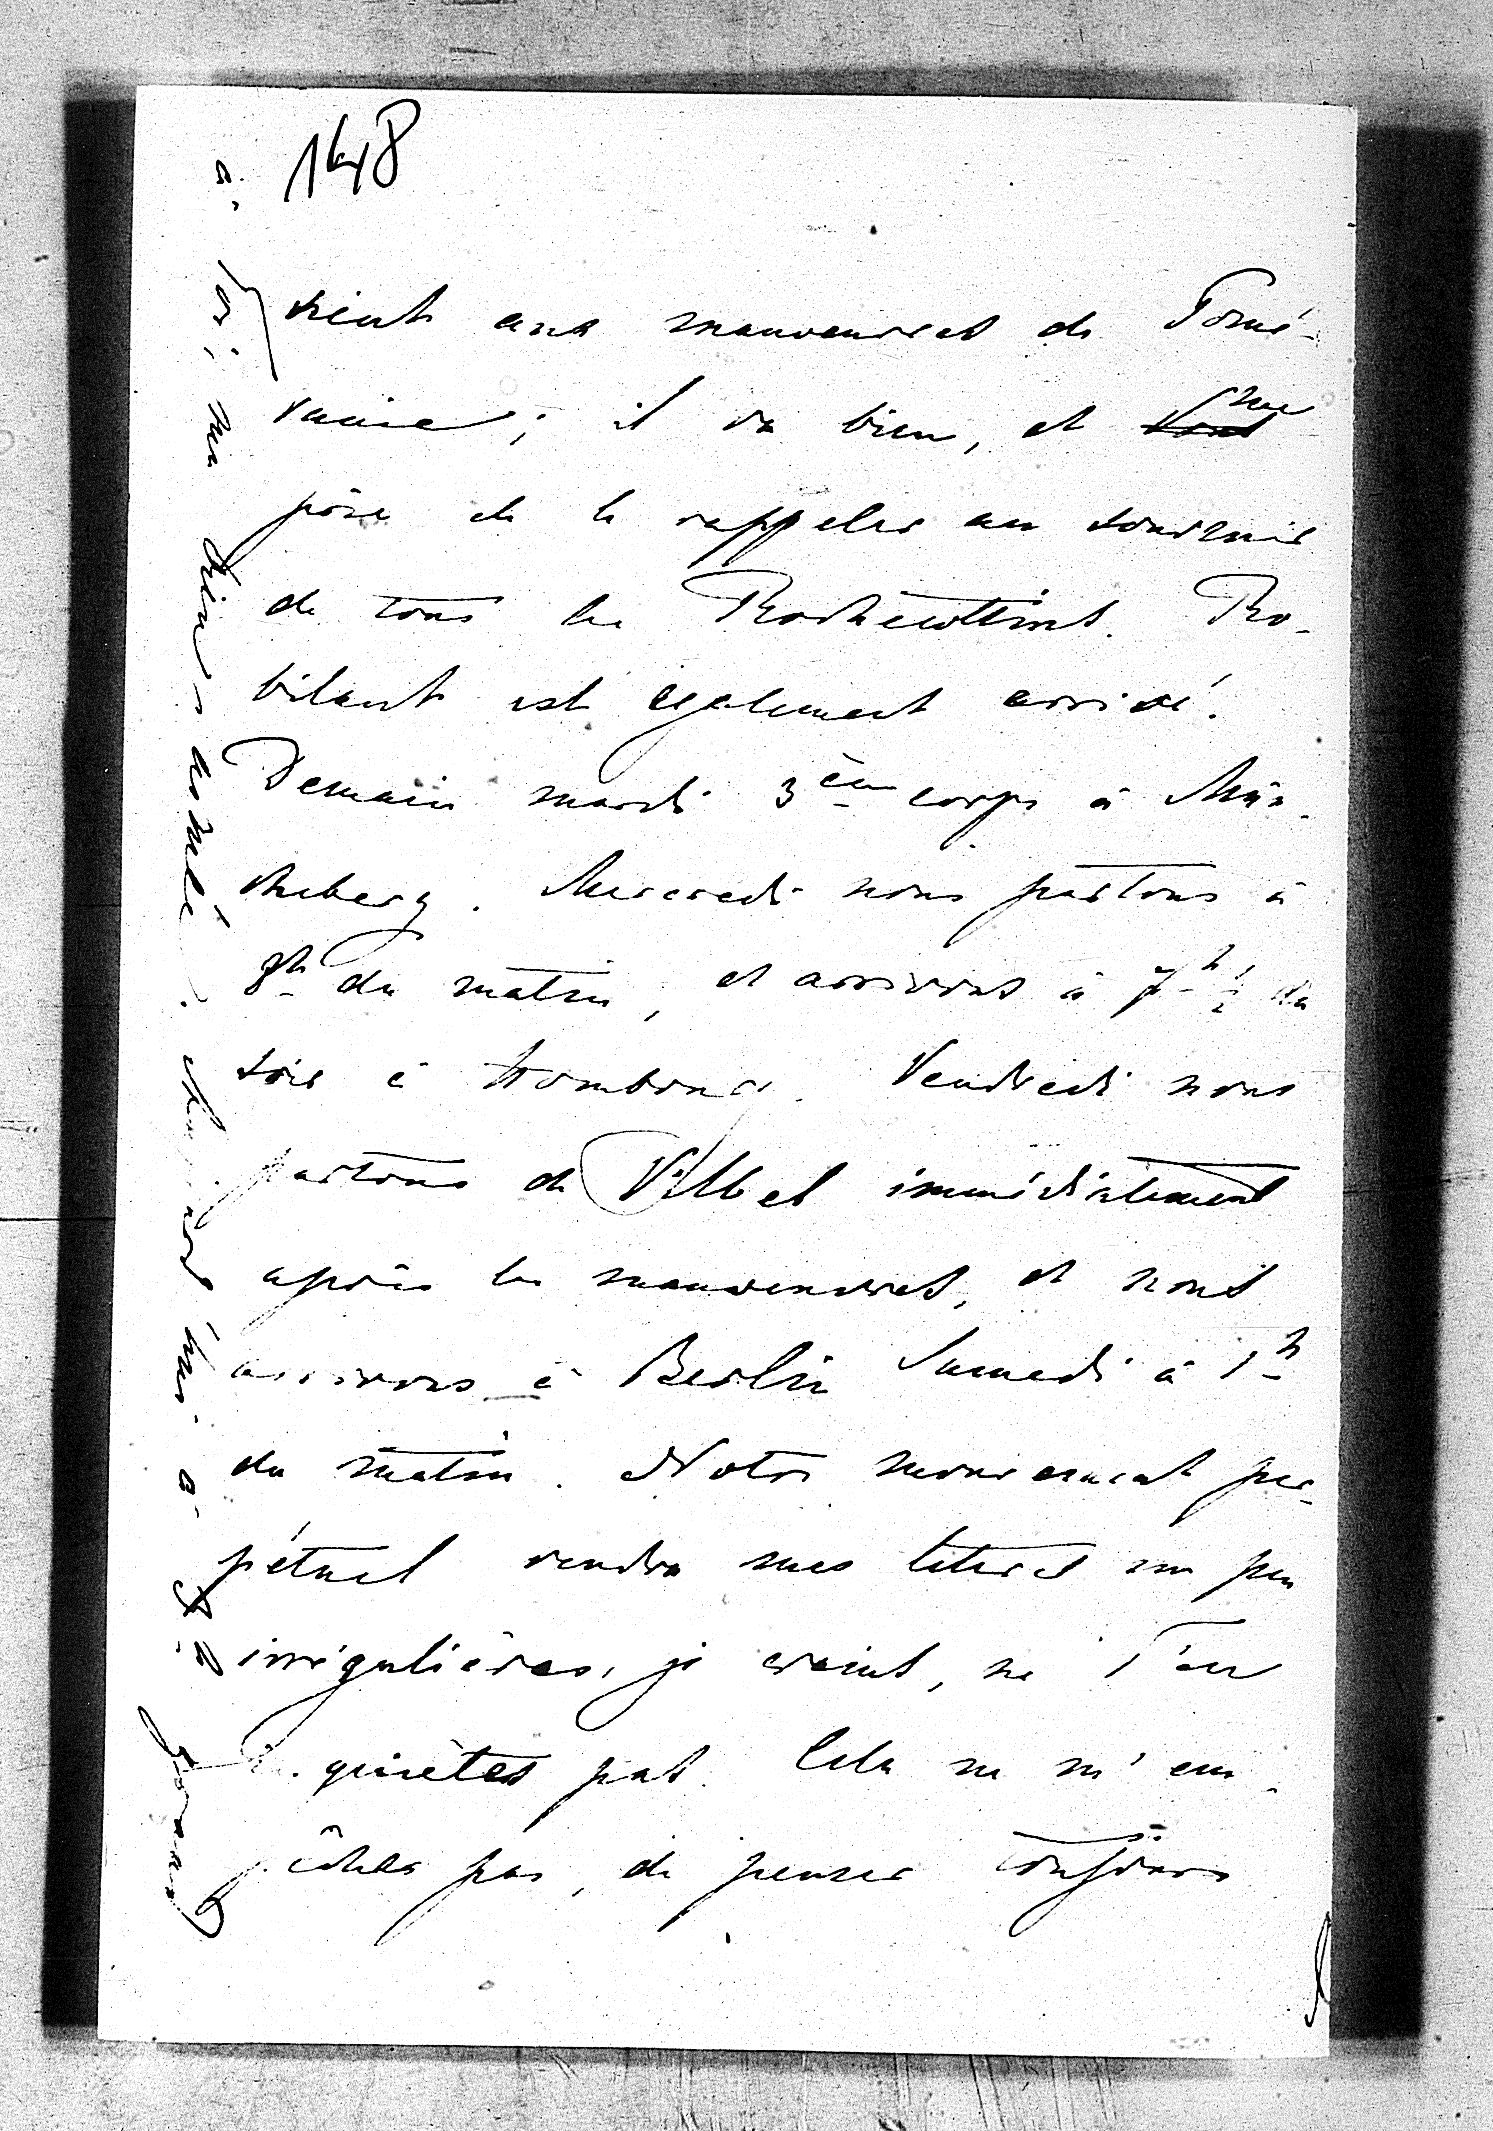 148
vient aux manoeuvres de Pomé-
ranie; il va bien, et me
prie de le rappeler au souvenir
de tous les Rochecottins. Ro-
bilant est également arrivé.
Demain mardi 3ème corps à Mün-
cheberg. Mercredi nous partons à
8h du matin, et arrivons à 7h 1/2 du
soir à Hombourg. Vendredi nous
partons de Vilbel immédiatement
après les manoeuvres, et nous
arrivons à Berlin Samedi à 1h
du matin. Notre mouvement per-
pétuel rendra mes lettres un peu
irrégulières, je crains, ne t'en
inquiètes pas. Cela ne m'em-
pêche pas, de penser toujours
à toi, ma